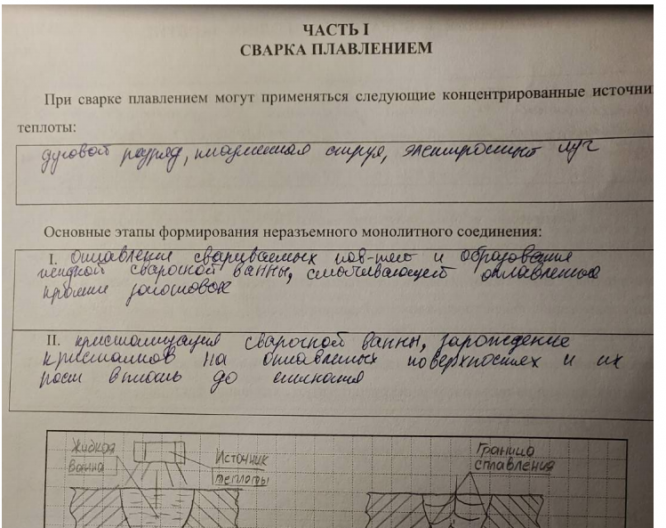 ЧАСТЬ I
СВАРКА ПЛАВЛЕНИЕМ
При сварке плавлением могут применяться следующие концентрированные источни
теплоты:
дуговой разряд, плазменная струя, электронный луч
Основные этапы формирования неразъемного монолитного соединения:
I. оплавление свариваемых пов-тей и образование
жидкой сварочной ванны, смачивающей оплавленные
кромки заготовок
II. кристаллизация сварочной ванны, зарождение
кристаллов на оплавленных поверхностях и их
рост вплоть до смыкания
Жидкая
ванна
Источник
теплоты
Граница
сплавления